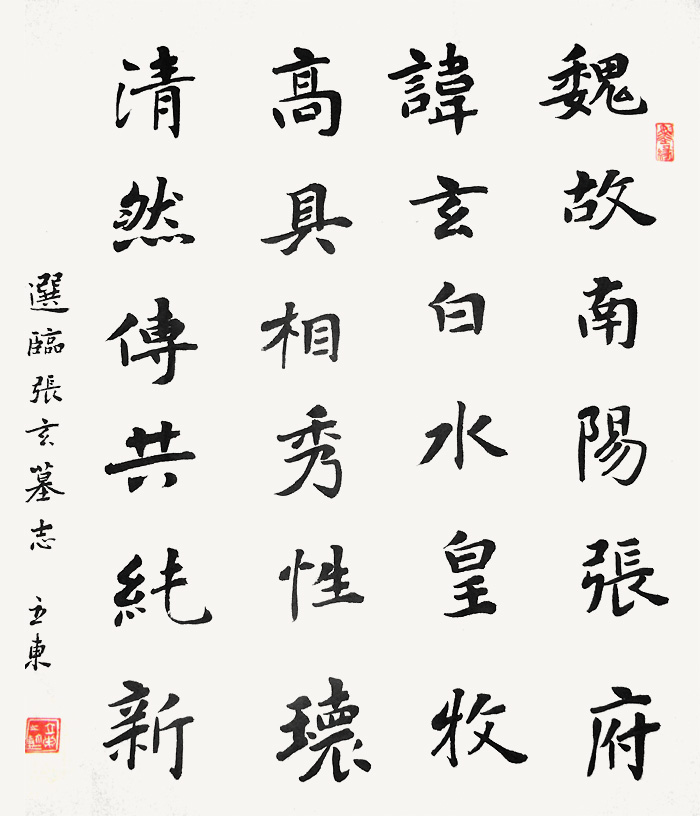 魏故南陽張府
諱玄白水皇牧
高具相秀性瓌
清然傳共純新
選臨張玄墓志 立東